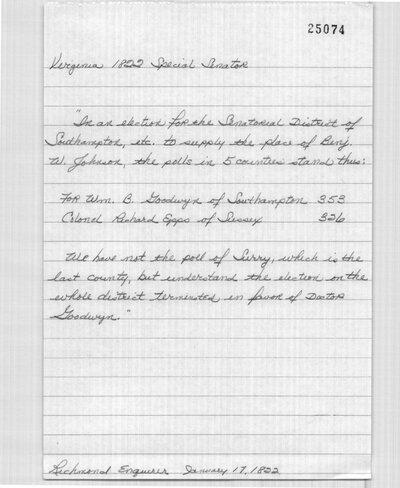 25074
Virginia 1822 Special Senator
"In an election for the Senatorial District of
Southampton, etc. to supply the place of Benj.
W. Johnson, the polls in 5 counties stand thus:
For Wm. B. Goodwyn of Southampton 353
Colonel Richard Epps of Sussex 326
We have not the poll of Surry, which is the
last county, but understand the election on the
whole district terminated in favor of Doctor
Goodwyn."
Richmond Enquirer January 17, 1822